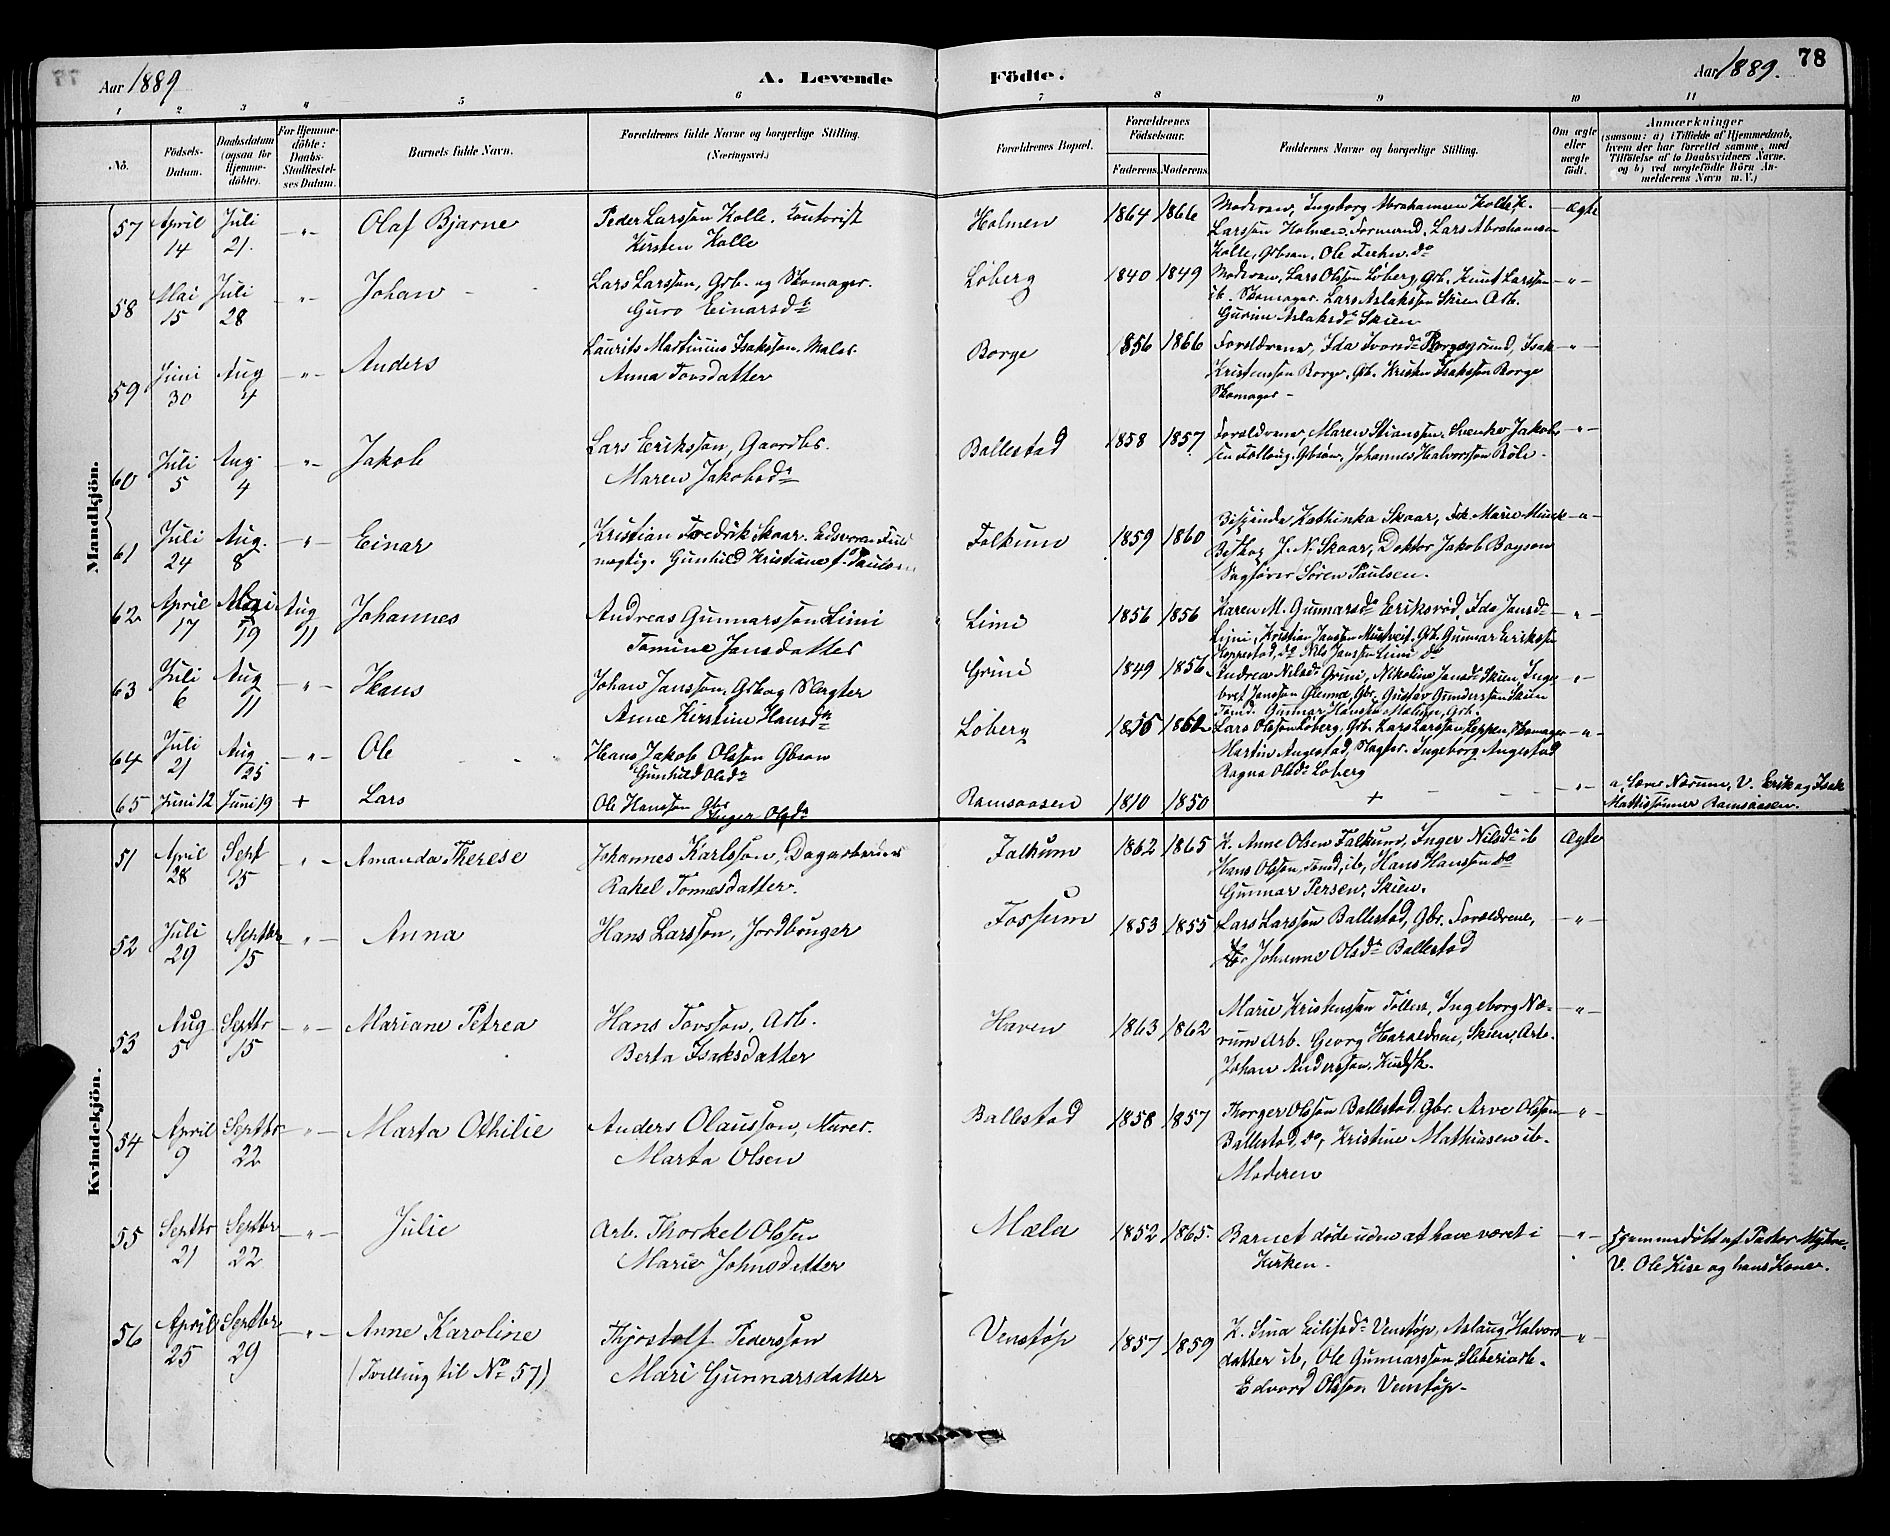 Aar 1889 A. Levende Födte. Aar 1889. 78
1 2 3 4 5 6 7 8 9 10 11
No.
Födsels-Datum.
Daabsdatum (ogsaa for Hjemmedöbte).
For Hjemmedöbte: Daabs-Stadfæstelses Datum.
Barnets fulde Navn.
Forældrenes fulde Navne og borgerlige Stilling.
(Næringsvei.)
Forældrenes Bopæl.
Forældrenes Födselsaar.
Faderens. Moderens.
Faddernes Navne og borgerlige Stilling.
Om ægte eller uægte födt.
Anmærkninger
(saasom: a) i Tilfælde af Hjemmedaab,
hvem der har forrettet samme, med
Tilföielse af to Daabsvidners Navne,
og b) ved uægtefödte Börn An-
melderens Navn m. V.)
Mandkjön.
57 April 14 Juli 21. -"- Olaf Bjarne Peder Larssøn Kolle. Kontorist
Kirsten Kolle
Holmen 1864 1866 Moderen, Ingeborg Abrahamsen Kolle, K.
Larssøn Holmen. Formand. Lars Abrahamsen
Kolle, Gbsøn. Ole do
Ægte
58 Mai 15 Juli 28 -"- Johan Lars Larssøn, Grb. og Skomager.
Guro Einarsdr
Løberg 1840 1849 Moderen, Lars Olssøn Løberg, Grb. Knut Larssøn
ib. Skomager. Lars Aslakssøn Skien Arb.
Gurine Aslaksdr Skien
-"-
59 Juni 30 Aug 4 -"- Anders Laurits Martinius Isakssøn. Maler.
Anna Torsdatter
Borge 1856 1866 Forældrene, Ida Ivarsdr Porsgrund, Isak
Kristenssøn Borge, Grb. Kristen Isakssøn Borge
Skomager -
-"-
60 Juli 5 Aug. 4 -"- Jakob Lars Erikssøn, Gaardbr.
Maren Jakobsdr
Ballestad 1858 1857 Forældrene, Maren Jakobs-
sen Gbsøn, Johannes Halvorssøn
-"-
61 Juli 24 Aug. 8 -"- Einar Kristian Fredrik Skaar.
mægtig. Gunhild Kristiane f. Paulsen
Falkum 1859 1860 Bispinde Kathinka Skaar, Frk. Marie Munk
Biskop J. N. Skaar, Doktor Jakob Bøyson
Sagfører Søren Paulsen.
-"-
62 April 17 Mai 19 Aug 11 Johannes Andreas Gunnarssøn Limi
Tomine Jansdatter
Limi 1856 1856 Karen M. Gunnarsdr Eriksrød, Ida Jansdr
Limi, Kristian Janssøn Grb. Gunnar Erikssøn
do Nils Janssøn Limi do
-"-
63 Juli 6 Aug 11 -"- Hans Johan Janssøn, Grb og Slagter
Anne Kirstine Hansdr
Grini 1849 1856 Andrea Nilsdr Grini, Nikoline Jansdr Skien, Inge-
bret Janssøn Gbr. Gustav Gunderssøn Skien
Gunnar Grb.
-"-
64 Juli 21 Aug 25 -"- Ole Hans Jakob Olssøn Gbsøn
Gunhild Olsdr
Løberg 1856 1862 Lars Olssøn Løberg, Grb. Lars Larssøn Skomager
Martin Augestad, Slagter. Ingeborg Augestad
Ragna Olsdr Løberg
-"-
65 Juni 12 Juni 19 + Lars Ole Hanssøn Gbr
Inger Olsdr
Ramsaasen 1810 1850 + - - - -"- a, Lærer Nærum, V. Erik og Isak
Mattissønner Ramsaasen.
Kvindekjön.
51 April 28 Sept 15 -"- Amanda Therese Johannes Karlssøn,
Rakel Tønnesdatter.
Falkum 1862 1865 K. Anne Olsen Falkum, Inger Nilsdr ib
Hans Olssøn, Tømd, ib, Hans Hanssøn do
Gunnar Persen, Skien.
Ægte
52 Juli 29 Septbr 15 -"- Anna Hans Larssøn, Jordbruger
Fossum 1853 1855 Lars Larssøn Ballestad, Gbr. Forældrene,
Johanne Olsdr Ballestad
-"-
53 Aug 5 Septbr 15 -"- Mariane Petrea Hans Torssøn, Arb.
Berta Isaksdatter
Haven 1863 1862 Marie Kristenssøn Follest, Ingeborg Næ-
rum Arb. Georg Haraldsen, Skien, Arb.
Johan Anderssøn, Kudsk.
-"-
54 April 9 Septbr 22 -"- Marta Othilie Anders Olaussøn, Murer.
Marta Olsen
Ballestad 1858 1857 Thorger Olssøn Ballestad Gbr. Arve Olssøn
Ballestad, do, Kristine Mathiasen ib.
Moderen
-"-
55 Septbr 21 Septbr 22 -"- Julie Arb. Thorkel Olssøn
Marie Johnsdatter
Mæla 1852 1865. Barnet døde uden at have været i
Kirken.
-"- Hjemmedøbt af Pastor
V. Ole Kise og hans Kone.
56 April 25 Septbr 29 -"- Anne Karoline
(Tvilling til No 57)
Thjostolf Pederssøn
Mari Gunnarsdatter
Venstøp 1857 1859 K. Sina Eilifsdr Venstøp, Aslaug Halvors-
datter ib, Ole Gunnarssøn Sliberiarb.
Edvard Olssøn Venstøp.
-"-